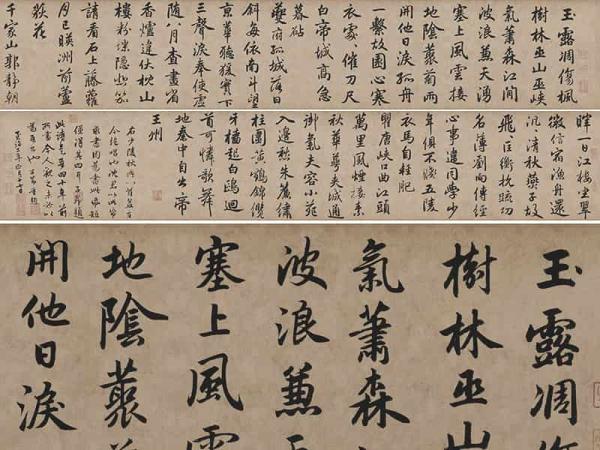 玉露凋傷楓
樹林巫山巫峽
氣蕭森江間
波浪蒹天湧
塞上風雲接
地陰藂菊兩
開他日淚孤舟
一繫故園心寒
衣處〻催刀尺
白帝城高急
暮砧
夔府孤城落日
斜每依南斗望
京華聽猿實下
三聲淚奉使虛
随八月查畫省
香爐違伏枕山
樓粉堞隱悲笳
請看石上藤蘿
月已暎洲前蘆
荻花
千家山郭静朝
暉一日江樓坐翠
微信宿漁舟還
汎〻清秋燕子故
飛匡衡抗疏功
名薄劉向傳經
心事違同學少
年俱不賤五陵
衣馬自輕肥
瞿唐峽口曲江頭
萬里風煙接素
秋華萼夾城通
御氣芙容小苑
入邊愁朱簾繡
柱圍黄鶴錦纜
牙檣起白鷗迴
首可憐歌舞
地秦中自古帝
王州
玉露凋傷
樹林巫山
氣蕭森
波浪蒹
塞上風雲
地陰藂
開他日淚